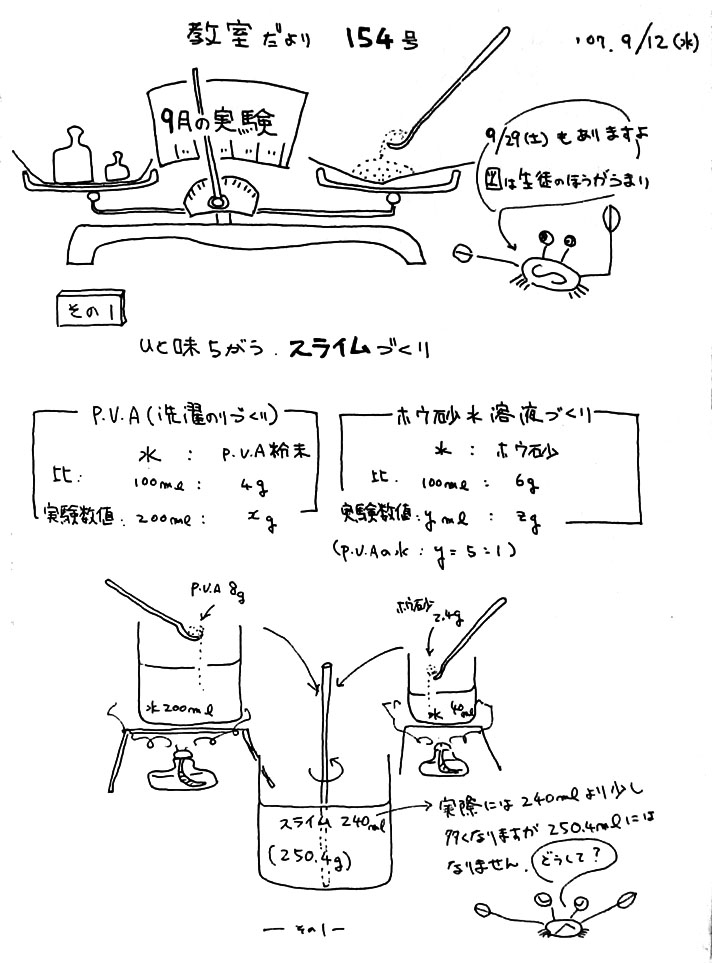 教室だより 154号 '07. 9/12(水)
9月の実験
9/29(土)もありますよ
図は生徒のほうがうまい
その1
ひと味ちがう.スライムづくり
P.V.A(洗濯のりづくり)
水 : P.V.A粉末
比: 100ml : 4g
実験数値: 200ml : xg
ホウ砂水溶液づくり
水 : ホウ砂
比. 100ml : 6g
実験数値: yml : zg
(P.V.Aの水 : y = 5 : 1)
P.V.A 8g
水200ml
ホウ砂
2.4g
水 40ml
スライム 240ml
(250.4g)
実際には240mlより少し
多くなりますが250.4mlには
なりません.
どうして?
— その1 —